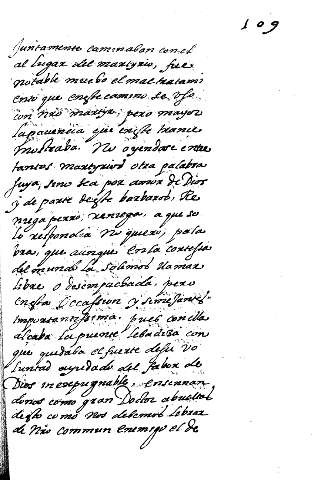 109
juntamente caminaban con el
al lugar del martyrio, fue
notable mucho el mal tratami
ento que en este camino se uso
con nro martyr; pero mayor
la paciencia que en este trance
mostraba. No oyendose entre
tantos martyrios otra palabra
suya, sino sea por amor de Dios
y de parte de este barbaros, Re
niega perro, reniega, a que so
lo respondia No quiero, pala
bra, que aunque en la cortesia
del mundo la solemos llamar
libre o desempachada, pero
en esta occassion y semejantes
importantissima. pues con ella
alcaba la puente lebadiza con
que quedaba el fuerte de su vo
luntad ayudado del fabor de
Dios inexpugnable, enseñan
donos como gran Doctor a bueltas
desto como nos debemos librar
de nro commun enemigo el de